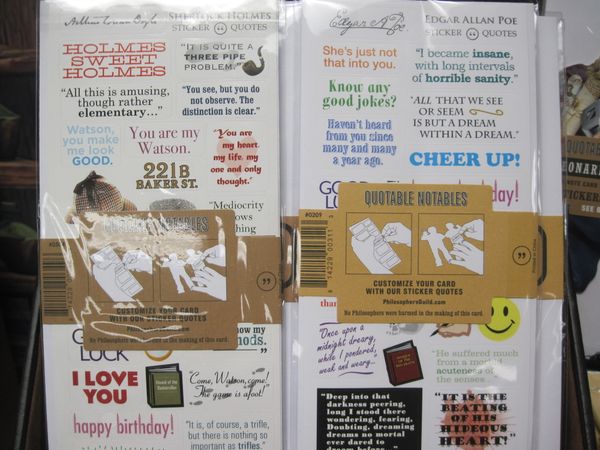 Arthur Conan Doyle
SHERLOCK HOLMES
STICKER QUOTES
HOLMES
SWEET
HOLMES
"IT IS QUITE A
THREE PIPE
PROBLEM."
"All this is amusing,
though rather
elementary..."
"You see, but you do
not observe. The
distinction is clear."
Watson,
you make
me look
GOOD.
You are my
Watson.
221B
BAKER ST.
"You are
my heart,
my life, my
one and only
thought."
"Mediocrity
QUOTABLE NOTABLES
CUSTOMIZE YOUR CARD
WITH OUR STICKER QUOTES
PhilosophersGuild.com
No Philosophers were harmed in the making of this card.
LUCK
I LOVE
YOU
Hound of the
Baskervilles
"Come, Watson, come!
The game is afoot!"
happy birthday!
"It is, of course, a trifle,
but there is nothing so
important as trifles."
Edgar A Poe
EDGAR ALLAN POE
STICKER QUOTES
She's just not
that into you.
"I became insane,
with long intervals
of horrible sanity."
Know any
good jokes?
"ALL THAT WE SEE
OR SEEM
IS BUT A DREAM
WITHIN A DREAM."
Haven't heard
from you since
many and many
a year ago.
CHEER UP!
day!
#0209
8 14229 00311 3
QUOTABLE NOTABLES
CUSTOMIZE YOUR CARD
WITH OUR STICKER QUOTES
PhilosophersGuild.com
No Philosophers were harmed in the making of this card.
Printed in China
Once upon a
midnight dreary,
while I pondered,
weak and weary...
"He suffered much
from a morbid
acuteness of
the senses
"Deep into that
darkness peering,
long I stood there
wondering, fearing,
Doubting, dreaming
dreams no mortal
ever dared to
dream before..."
"IT IS THE
BEATING
OF HIS
HIDEOUS
HEART!"
QUOTABLE
STICKERS